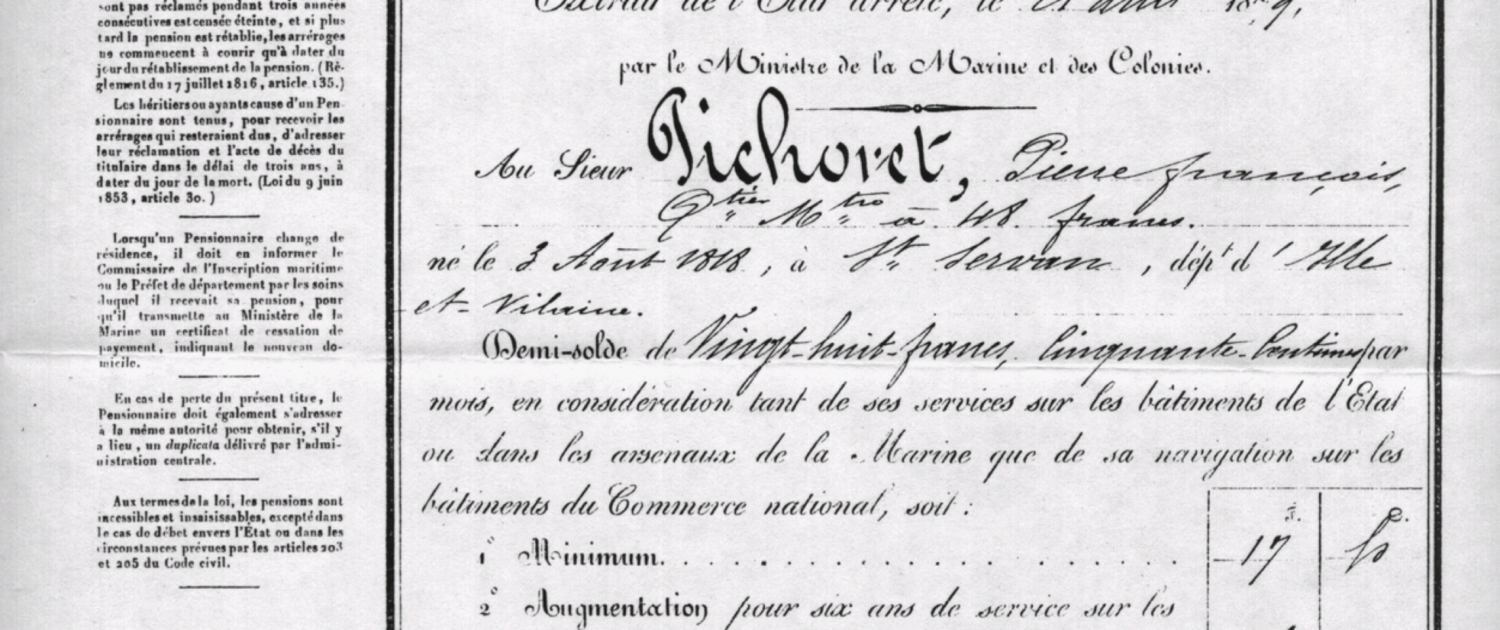 sont pas réclamés pendant trois années
consécutives est censée éteinte, et si plus
tard la pension est rétablie, les arrérages
ne commencent à courir qu'à dater du
jour du rétablissement de la pension. (Rè-
glement du 17 juillet 1816, article 135.)
Les héritiers ou ayants cause d'un Pen-
sionnaire sont tenus, pour recevoir les
arrérages qui resteraient dus, d'adresser
leur réclamation et l'acte de décès du
titulaire dans le délai de trois ans, à
dater du jour de la mort. (Loi du 9 juin
1853, article 30.)
Lorsqu'un Pensionnaire change de
résidence, il doit en informer le
Commissaire de l'Inscription maritime
ou le Préfet de département par les soins
duquel il recevait sa pension, pour
qu'il transmette au Ministère de la
Marine un certificat de cessation de
payement, indiquant le nouveau do-
micile.
En cas de perte du présent titre, le
Pensionnaire doit également s'adresser
à la même autorité pour obtenir, s'il y
a lieu, un duplicata délivré par l'admi-
nistration centrale.
Aux termes de la loi, les pensions sont
incessibles et insaisissables, excepté dans
le cas de débet envers l'État ou dans les
circonstances prévues par les articles 203
et 205 du Code civil.
Extrait de l'État arrêté, le
par le Ministre de la Marine et des Colonies.
Au Sieur Pichoret, Pierre françois,
Q.tier M.tre à 48 francs.
né le 3 Août 1818, à St Servan, dépt d'Ille
et Vilaine.
Demi-solde de Vingt-huit-francs, Cinquante-Centimes par
mois, en considération tant de ses services sur les bâtiments de l'État
ou dans les arsenaux de la Marine que de sa navigation sur les
bâtiments du Commerce national, soit :
f. c.
1° Minimum. . . . . . . . . . . . . 17
2° Augmentation pour six ans de service sur les